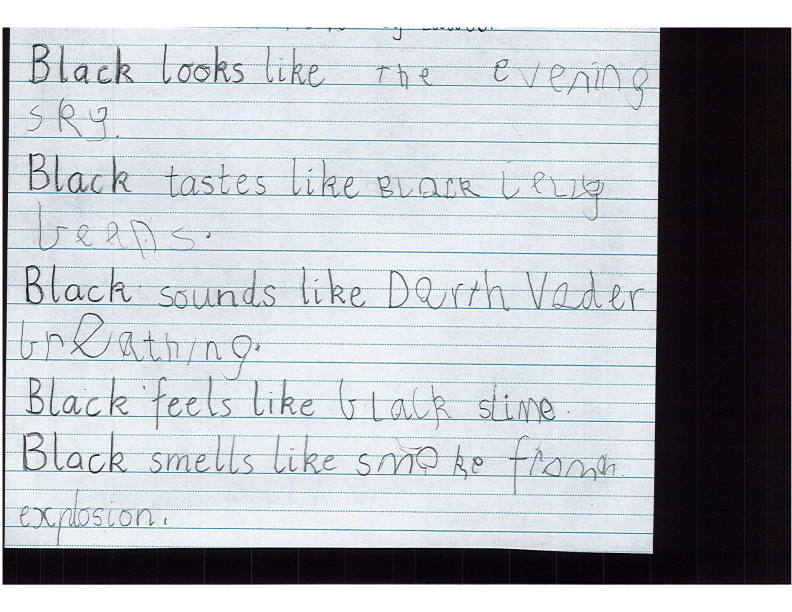 Black looks like The evening
sky.
Black tastes like BLACK Lelly
beans.
Black sounds like Darth Vader
breathing.
Black feels like black slime.
Black smells like smoke from an
explosion.